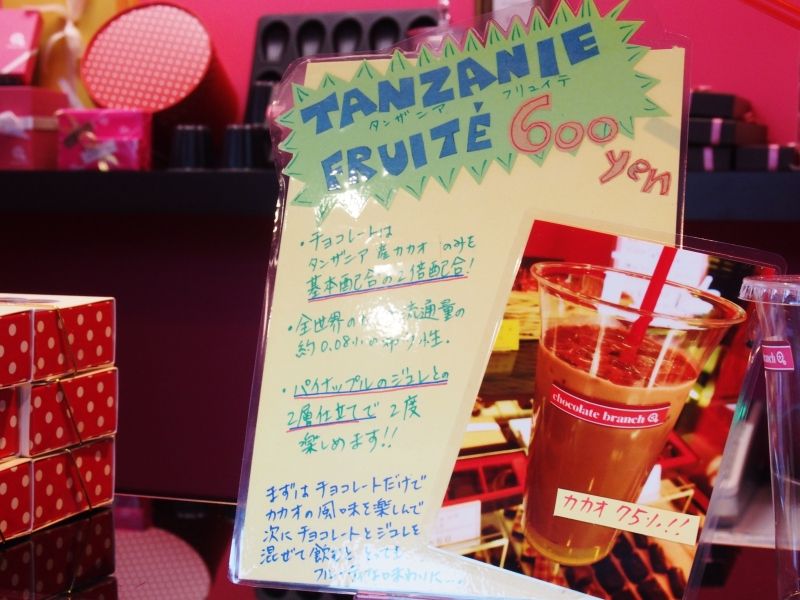 TANZANIE
タンザニア フリュイテ
FRUITÉ 600
yen
・チョコレートは
タンザニア産カカオのみを
基本配合の2倍配合!
・全世界の 流通量の
約0.08%の希少性.
・パイナップルのジュレとの
2層仕立てで 2度
楽しめます!!
まずはチョコレートだけで
カカオの風味を楽しんで
次にチョコレートとジュレを
混ぜて飲むと とっても
味わりに…。
chocolate branch
カカオ75%!!
branch